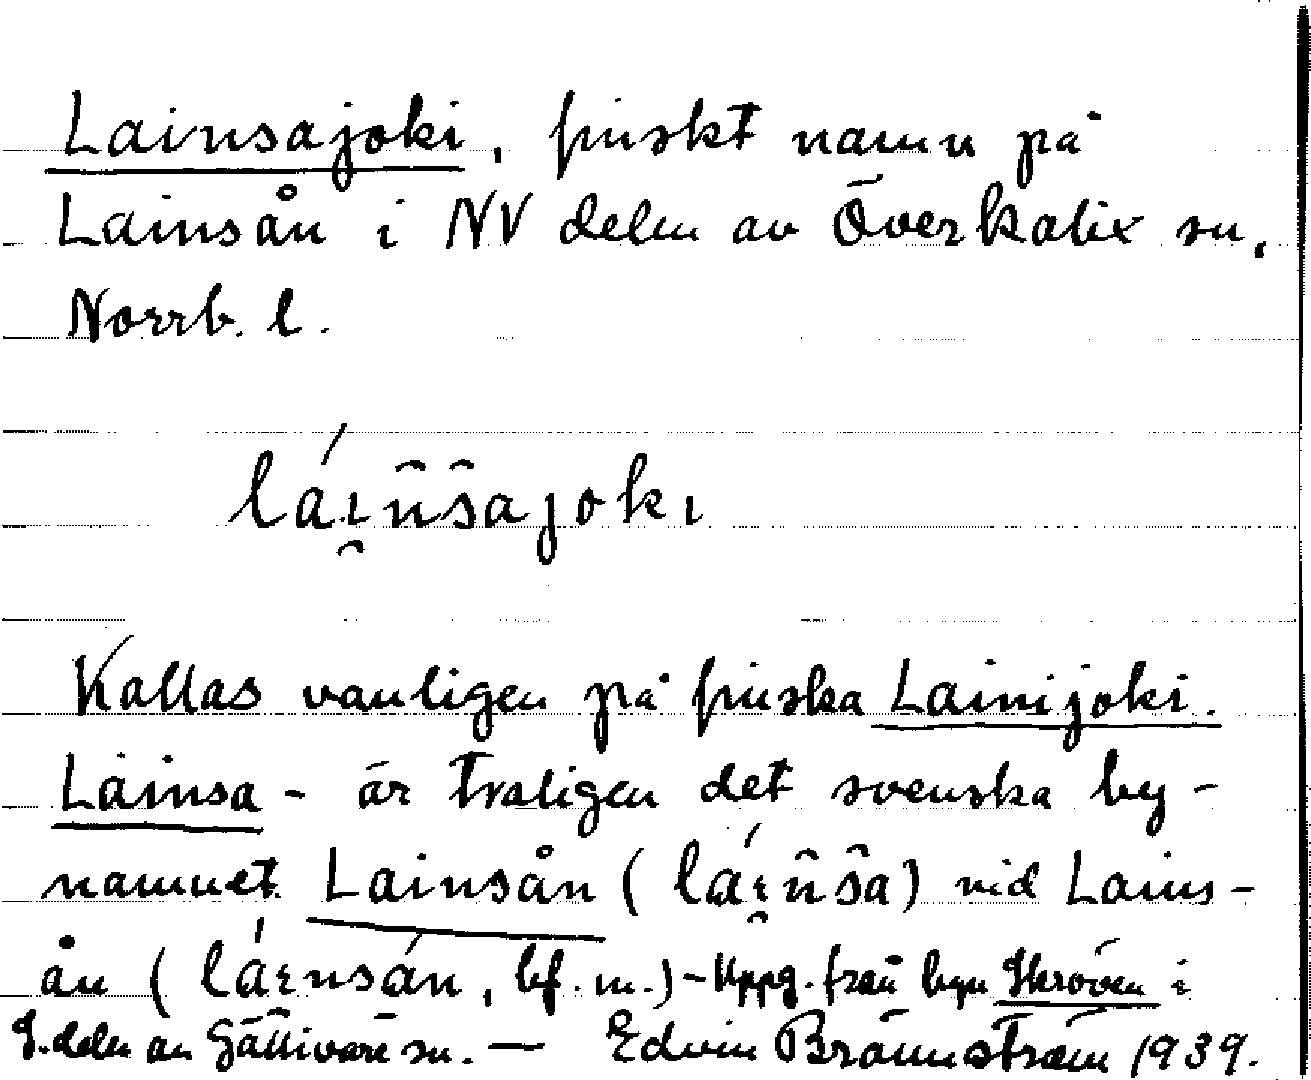 Lainsajoki, finskt namn på
Lainsån i NV delen av Överkalix sn,
Norrb. l.
láın̑s̑ajokı
Kallas vanligen på finska Lainijoki.
Lainsa - är troligen det svenska by-
namnet Lainsån (láın̑s̑a) vid Lains-
ån (láɪnsán, bf. m.) - Uppg. från byn Skröven i
S. delen av Gällivare sn. — Edvin Brännström 1939.